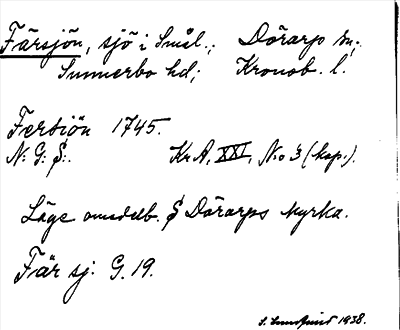 Färsjön, sjö i Smål.; Dörarp sn;
Sunnerbo hd; Kronob. l.
Fersiön 1745.
N: G: S:.
Kr A, XXI, N:o 3 (kop.).
Läge omedelb. S Dörarps kyrka.
Fär sj. G. 19.
S. Lundquist 1938.